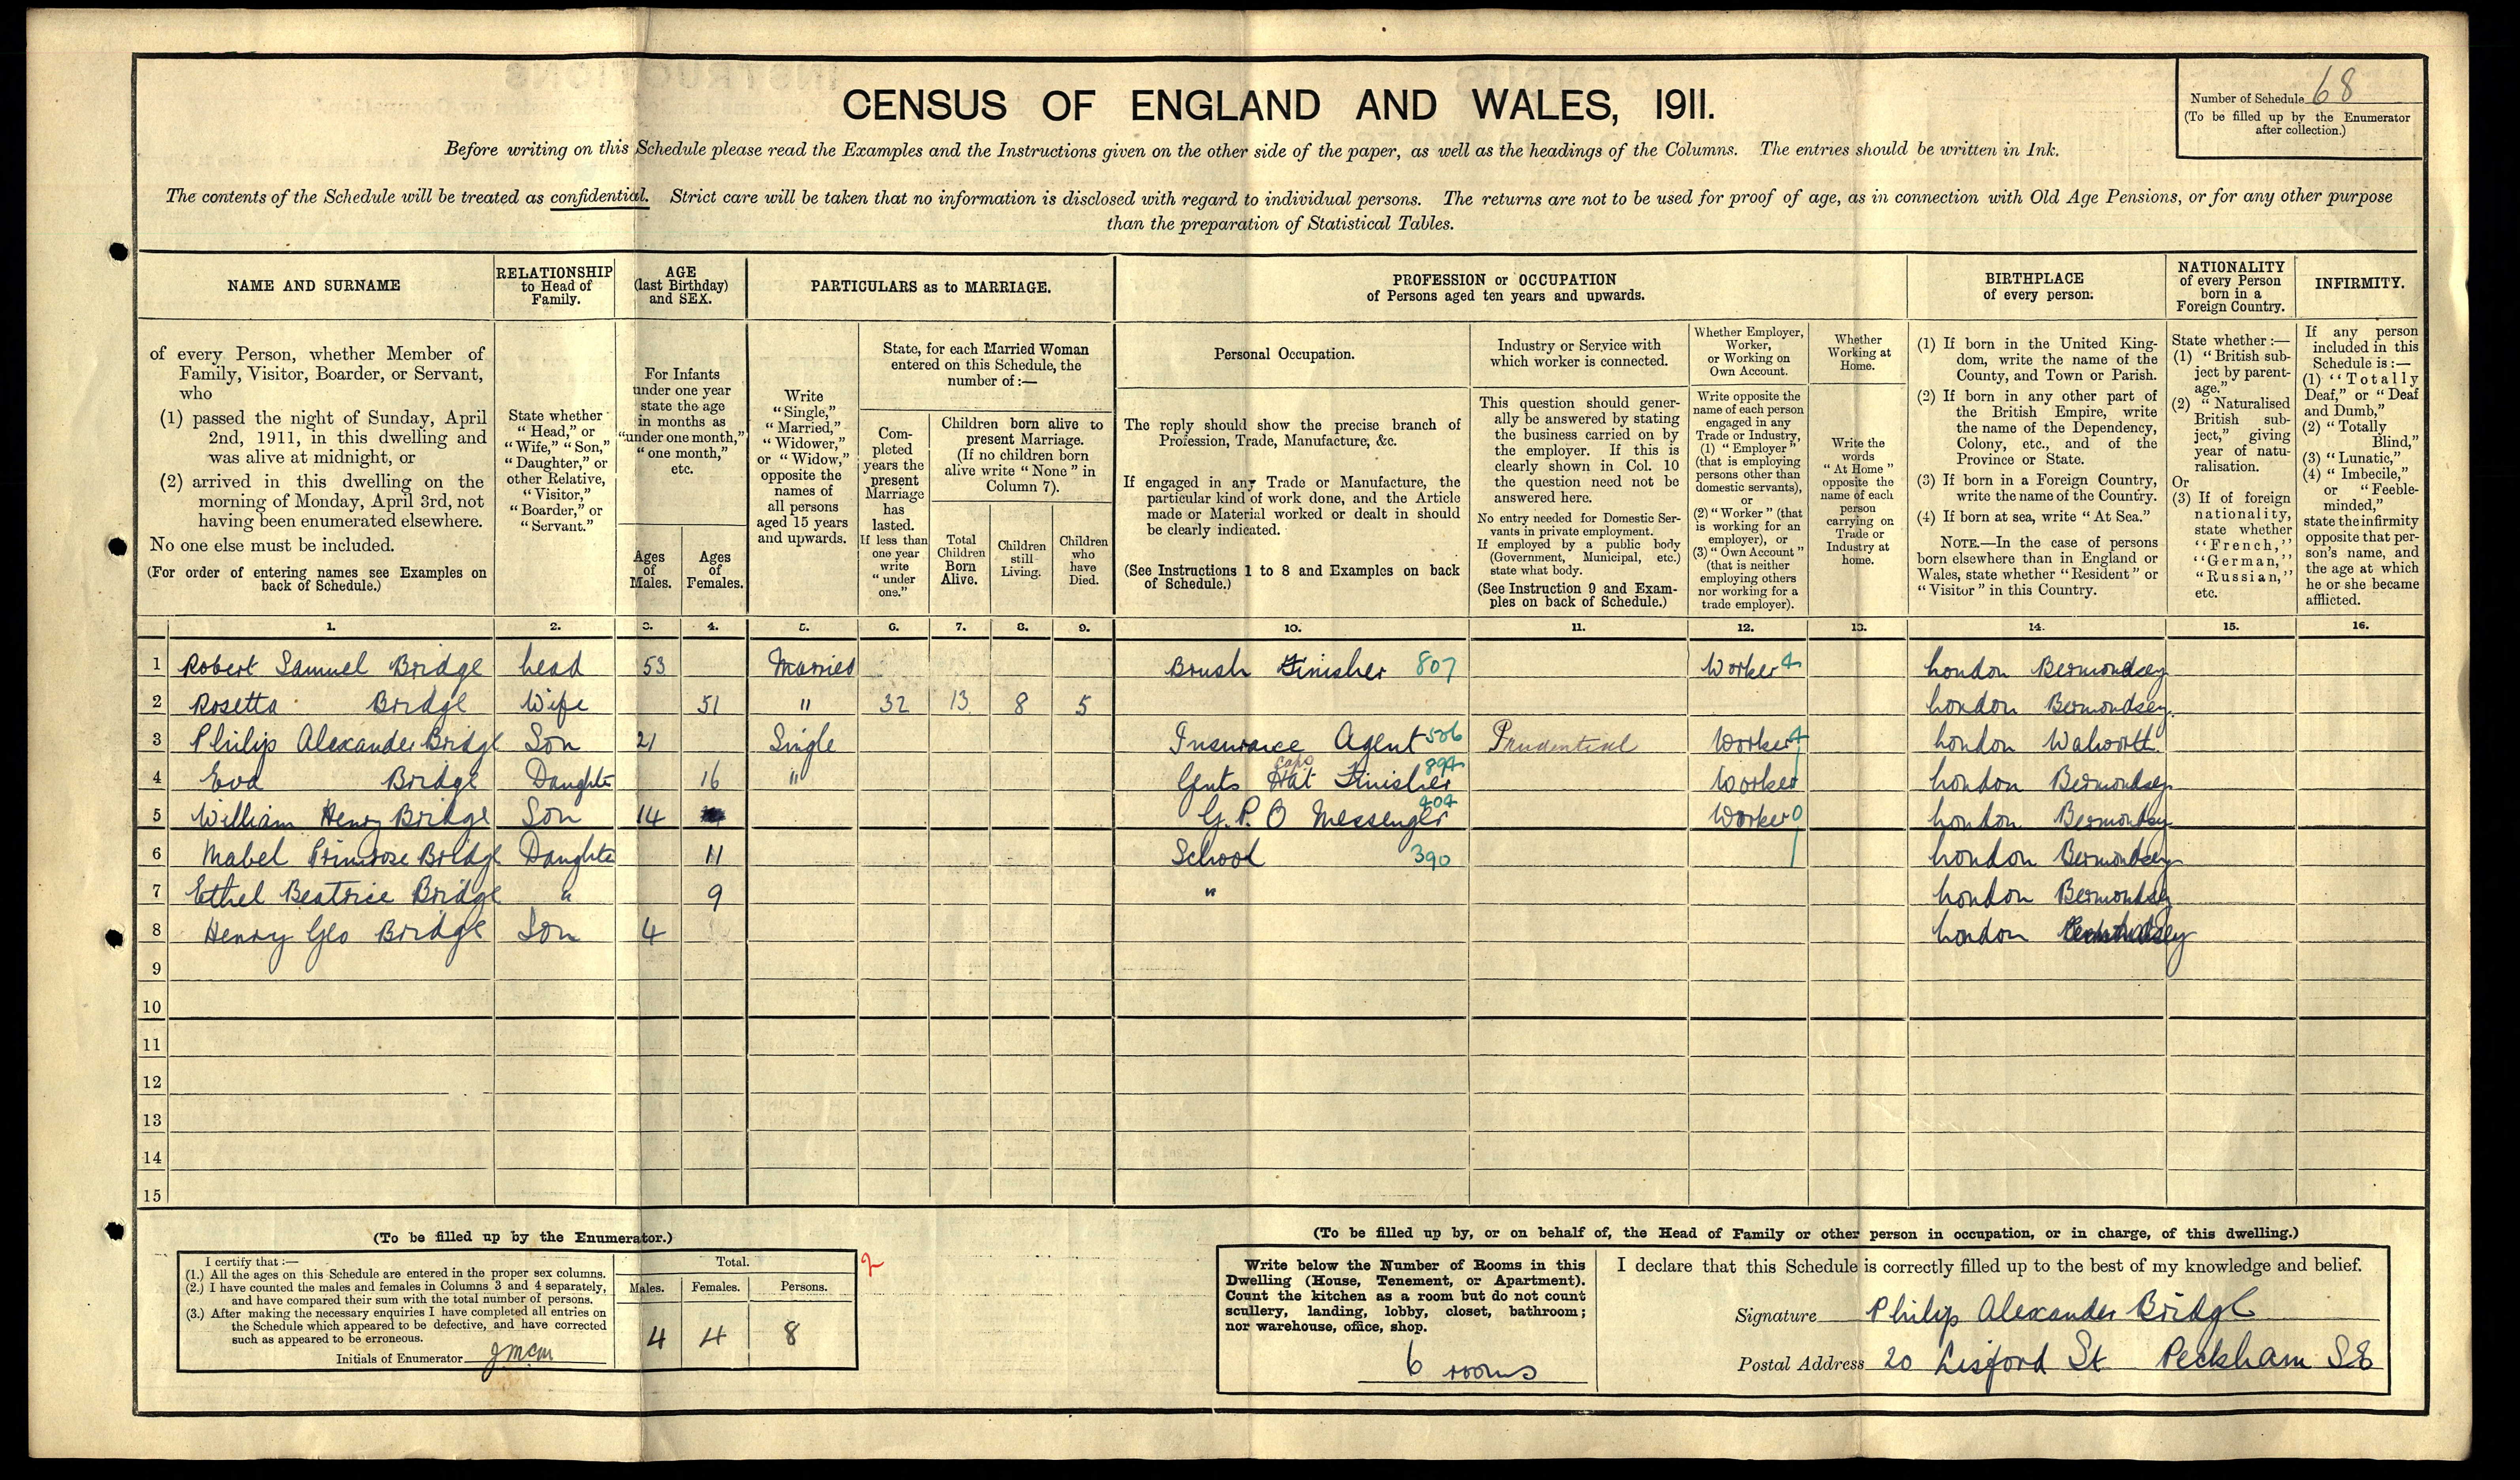 CENSUS OF ENGLAND AND WALES, 1911.
Number of Schedule 68
(To be filled up by the Enumerator
after collection.)
Before writing on this Schedule please read the Examples and the Instructions given on the other side of the paper, as well as the headings of the Columns. The entries should be written in Ink.
The contents of the Schedule will be treated as confidential. Strict care will be taken that no information is disclosed with regard to individual persons. The returns are not to be used for proof of age, as in connection with Old Age Pensions, or for any other purpose
than the preparation of Statistical Tables.
NAME AND SURNAME
of every Person, whether Member of
Family, Visitor, Boarder, or Servant,
who
(1) passed the night of Sunday, April
2nd, 1911, in this dwelling and
was alive at midnight, or
(2) arrived in this dwelling on the
morning of Monday, April 3rd, not
having been enumerated elsewhere.
No one else must be included.
(For order of entering names see Examples on
back of Schedule.)
RELATIONSHIP
to Head of
Family.
State whether
"Head," or
"Wife," "Son,"
"Daughter," or
other Relative,
"Visitor,"
"Boarder," or
"Servant."
AGE
(last Birthday)
and SEX.
For Infants
under one year
state the age
in months as
"under one month,"
"one month,"
etc.
Ages
of
Males.
Ages
of
Females.
PARTICULARS as to MARRIAGE.
Write
"Single,"
"Married,"
"Widower,"
or "Widow,"
opposite the
names of
all persons
aged 15 years
and upwards.
State, for each Married Woman
entered on this Schedule, the
number of:—
Com-
pleted
years the
present
Marriage
has
lasted.
If less than
one year
write
"under
one."
Children born alive to
present Marriage.
(If no children born
alive write "None" in
Column 7).
Total
Children
Born
Alive.
Children
still
Living.
Children
who
have
Died.
PROFESSION or OCCUPATION
of Persons aged ten years and upwards.
Personal Occupation.
The reply should show the precise branch of
Profession, Trade, Manufacture, &c.
If engaged in any Trade or Manufacture, the
particular kind of work done, and the Article
made or Material worked or dealt in should
be clearly indicated.
(See Instructions 1 to 8 and Examples on back
of Schedule.)
Industry or Service with
which worker is connected.
This question should gener-
ally be answered by stating
the business carried on by
the employer. If this is
clearly shown in Col. 10
the question need not be
answered here.
No entry needed for Domestic Ser-
vants in private employment.
If employed by a public body
(Government, Municipal, etc.)
state what body.
(See Instruction 9 and Exam-
ples on back of Schedule.)
Whether Employer,
Worker,
or Working on
Own Account.
Write opposite the
name of each person
engaged in any
Trade or Industry,
(1) "Employer"
(that is employing
persons other than
domestic servants),
or
(2) "Worker" (that
is working for an
employer), or
(3) "Own Account"
(that is neither
employing others
nor working for a
trade employer).
Whether
Working at
Home.
Write the
words
"At Home"
opposite the
name of each
person
carrying on
Trade or
Industry at
home.
BIRTHPLACE
of every person.
(1) If born in the United King-
dom, write the name of the
County, and Town or Parish.
(2) If born in any other part of
the British Empire, write
the name of the Dependency,
Colony, etc., and of the
Province or State.
(3) If born in a Foreign Country,
write the name of the Country.
(4) If born at sea, write "At Sea."
NOTE.—In the case of persons
born elsewhere than in England or
Wales, state whether "Resident" or
"Visitor" in this Country.
NATIONALITY
of every Person
born in a
Foreign Country.
State whether:—
(1) "British sub-
ject by parent-
age."
(2) "Naturalised
British sub-
ject," giving
year of natu-
ralisation.
Or
(3) If of foreign
nationality,
state whether
"French,"
"German,"
"Russian,"
etc.
INFIRMITY.
If any person
included in this
Schedule is:—
(1) "Totally
Deaf," or "Deaf
and Dumb,"
(2) "Totally
Blind,"
(3) "Lunatic,"
(4) "Imbecile,"
or "Feeble-
minded,"
state the infirmity
opposite that per-
son's name, and
the age at which
he or she became
afflicted.
1. 2. 3. 4. 5. 6. 7. 8. 9. 10. 11. 12. 13. 14. 15. 16.
1 Robert Samuel Bridge head 53 Married Brush Finisher 807 Worker 4 London Bermondsey
2 Rosetta Bridge Wife 51 " 32 13 8 5 London Bermondsey
3 Philip Alexander Bridge Son 21 Single Insurance Agent 506 Prudential Worker 4 London Walworth
4 Eva Bridge Daughter 16 " Gents Hat Caps Finisher 894 Worker London Bermondsey
5 William Henry Bridge Son 14 G.P.O Messenger 404 Worker 0 London Bermondsey
6 Mabel Primrose Bridge Daughter 11 School 390 London Bermondsey
7 Ethel Beatrice Bridge " 9 " London Bermondsey
8 Henry Geo Bridge Son 4 London
9
10
11
12
13
14
15
(To be filled up by the Enumerator.)
I certify that:—
(1.) All the ages on this Schedule are entered in the proper sex columns.
(2.) I have counted the males and females in Columns 3 and 4 separately,
and have compared their sum with the total number of persons.
(3.) After making the necessary enquiries I have completed all entries on
the Schedule which appeared to be defective, and have corrected
such as appeared to be erroneous.
Initials of Enumerator
Total.
Males. Females. Persons.
4 4 8
(To be filled up by, or on behalf of, the Head of Family or other person in occupation, or in charge, of this dwelling.)
Write below the Number of Rooms in this
Dwelling (House, Tenement, or Apartment).
Count the kitchen as a room but do not count
scullery, landing, lobby, closet, bathroom;
nor warehouse, office, shop.
6 rooms
I declare that this Schedule is correctly filled up to the best of my knowledge and belief.
Signature Philip Alexander Bridge
Postal Address 20 Lisford St Peckham SE